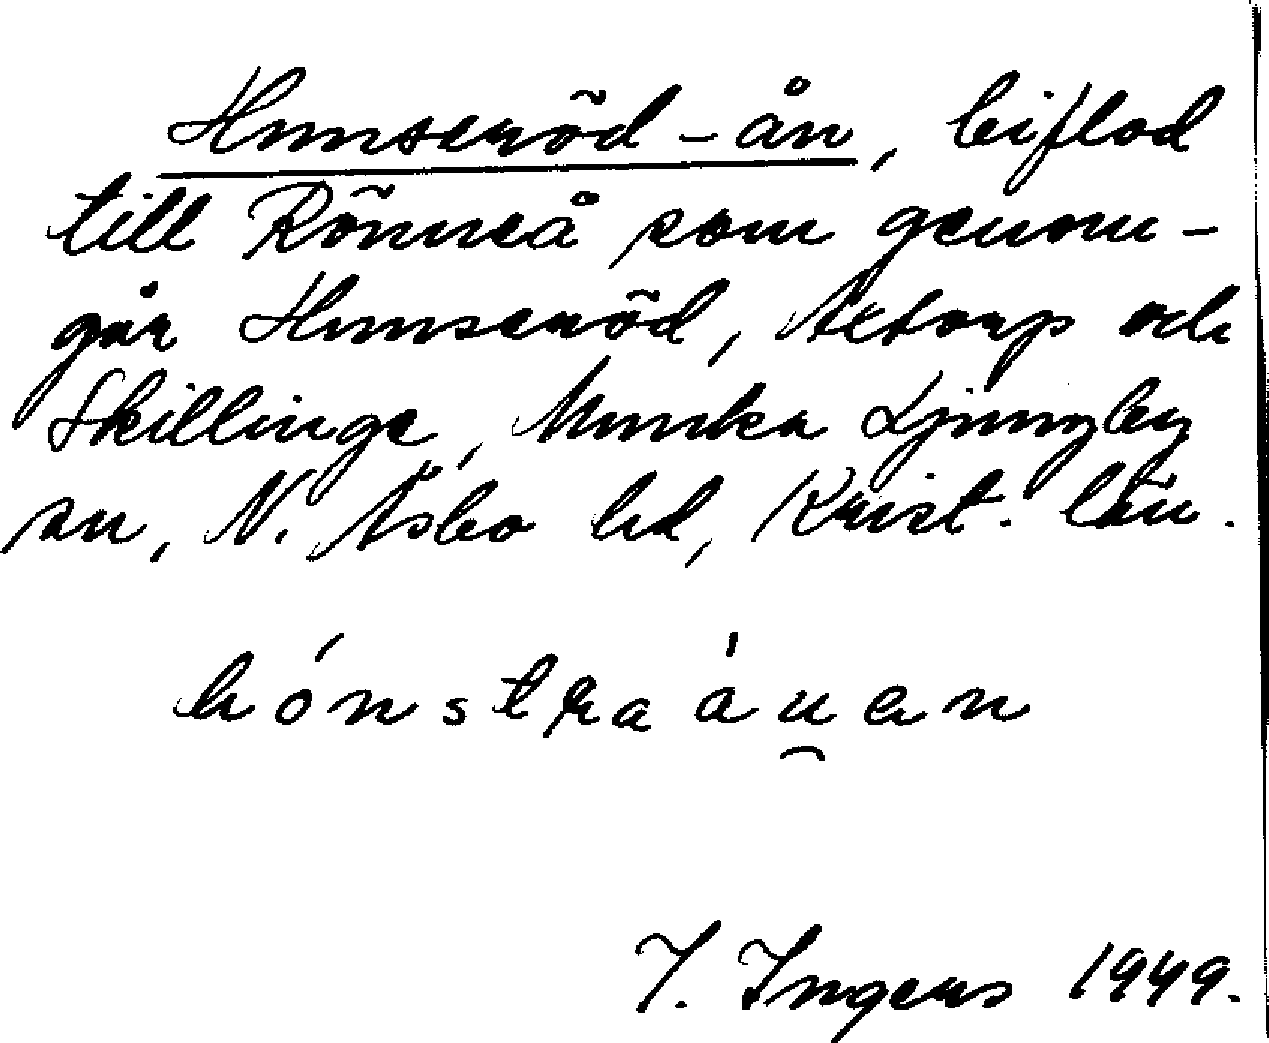 Hunseröd-ån, biflod
till Rönneå som genom-
går Hunseröd, Axtorp och
Skillinge, Munka Ljungby
sn, N. Åsbo hd, Krist. län.
hónstra áu̯en
I. Ingers 1949.